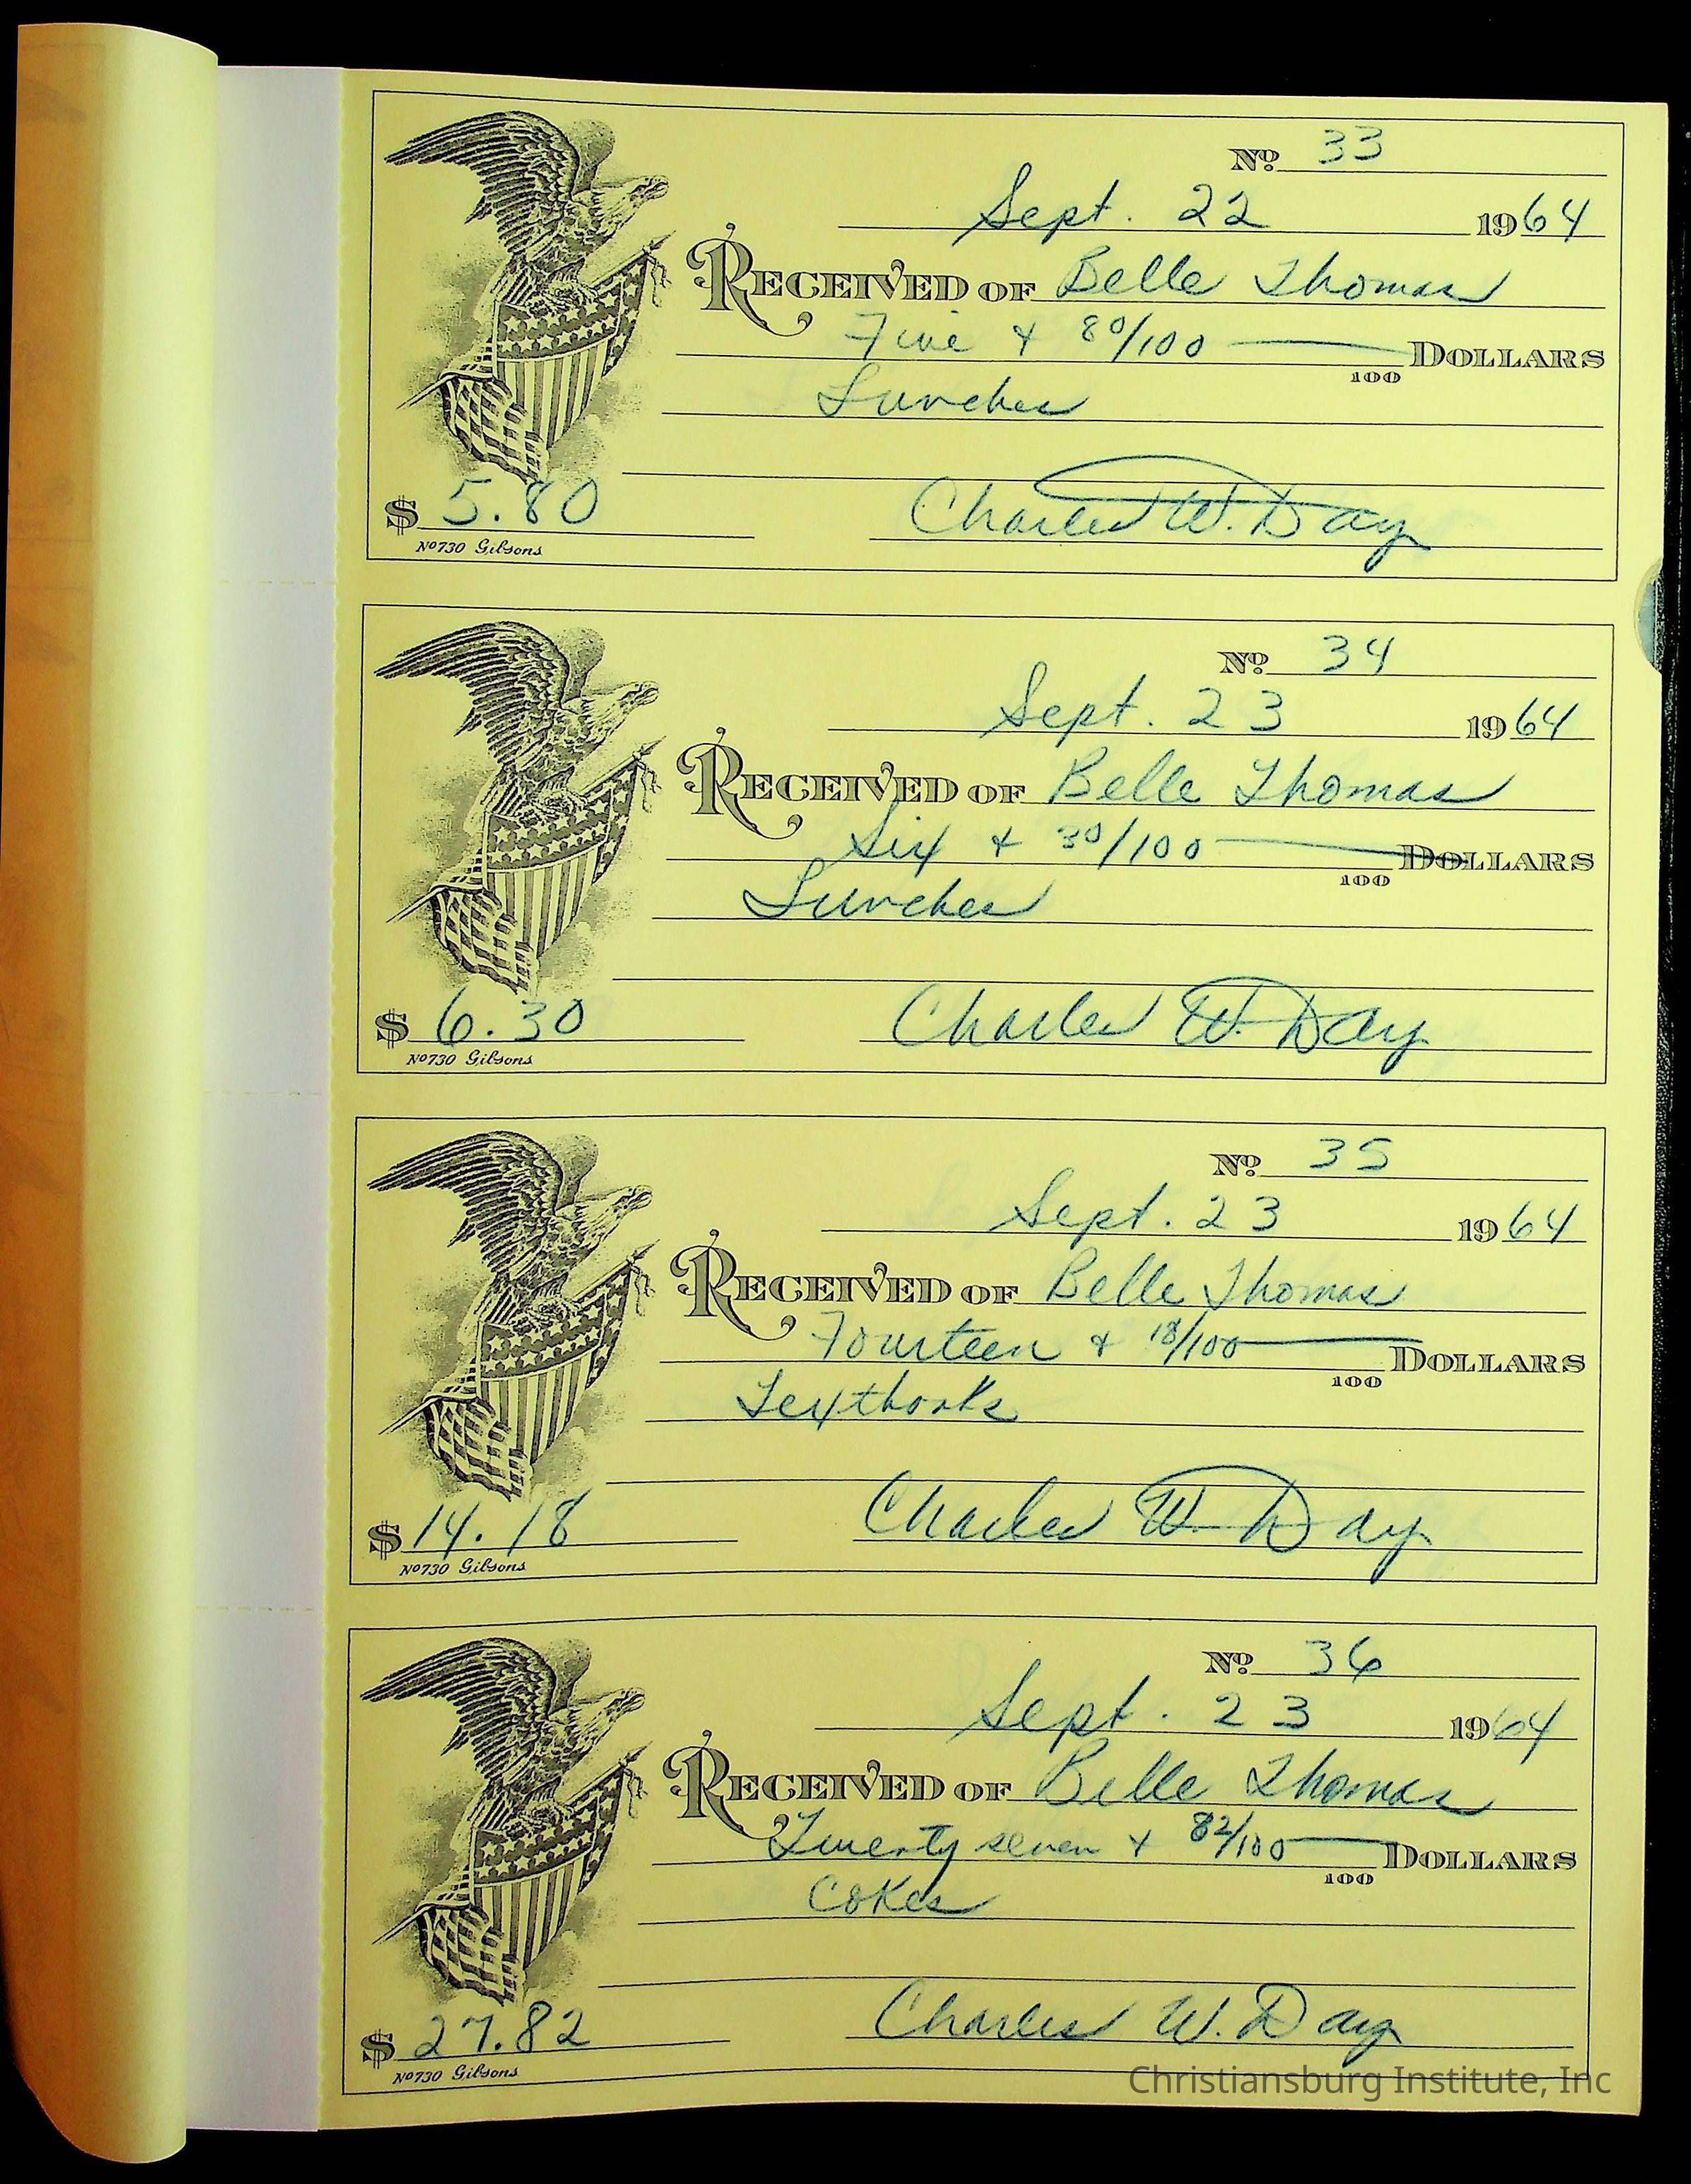 Nº 33
Sept. 22 1964
RECEIVED OF Belle Thomas
Five + 80/100 DOLLARS
100
Lunches
$ 5.80 Charles W. Day
Nº730 Gibsons
Nº 34
Sept. 23 1964
RECEIVED OF Belle Thomas
Six + 30/100 DOLLARS
100
Lunches
$ 6.30 Charles W. Day
Nº730 Gibsons
Nº 35
Sept. 23 1964
RECEIVED OF Belle Thomas
Fourteen + 18/100 DOLLARS
100
Textbooks
$ 14.18 Charles W. Day
Nº730 Gibsons
Nº 36
Sept. 23 1964
RECEIVED OF Belle Thomas
Twenty seven + 82/100 DOLLARS
100
Cokes
$ 27.82 Charles W. Day
Nº730 Gibsons
Christiansburg Institute, Inc